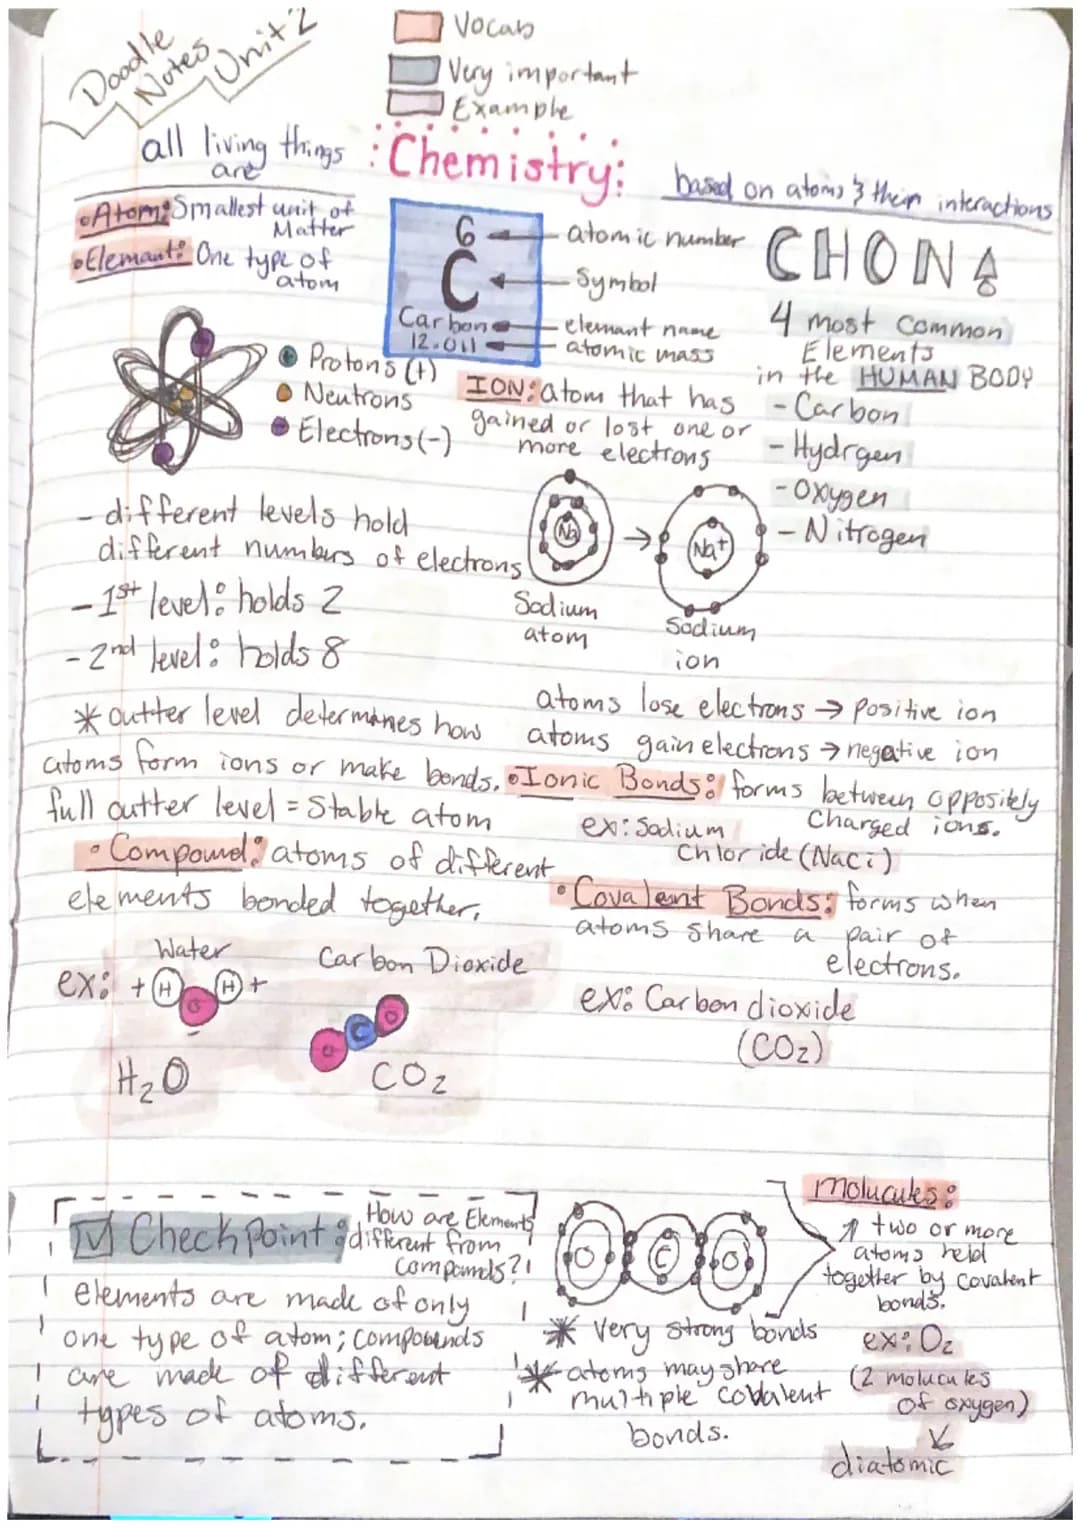 Doodle
Notes
Unit 2
Vocab
Very important
Example
all living things
are
Chemistry:
based on atoms & their interactions
•Atom: Smallest unit of
Matter
•Elemant: One type of
atom
6
C
Carbon
12.011
atomic number
Symbol
elemant name
atomic mass
CHON
4 most common
Elements
in the HUMAN BODY
- Carbon
- Hydrgen
- Oxygen
- Nitrogen
Protons (+)
Neutrons
Electrons (-)
ION: atom that has
gained or lost one or
more electrons
Na
Na+
Sodium
atom
Sodium
ion
- different levels hold
different numbers of electrons
- 1st level: holds 2
- 2nd level: holds 8
* outter level determines how
atoms form ions or make bonds.
full outter level = Stable atom
atoms lose electrons → positive ion
atoms gain electrons → negative ion
•Ionic Bonds: forms between oppositely
Charged ions.
ex: Sodium
Chloride (Naci)
• Compound: atoms of different
elements bonded together.
• Covalent Bonds: forms when
atoms share a pair of
electrons.
ex: Carbon dioxide
(CO2)
Water
Carbon Dioxide
ex: + H H +
O
-
O C O
H2O
CO2
Checkpoint: How are Elements
different from
compounds?!
elements are made of only
one type of atom; compounds
are made of different
types of atoms.
O C O
* very strong bonds
* atoms may share
multiple covalent
bonds.
Molucules:
↑ two or more
atoms held
together by covalent
bonds.
ex: O2
(2 molucules
of oxygen)
diatomic